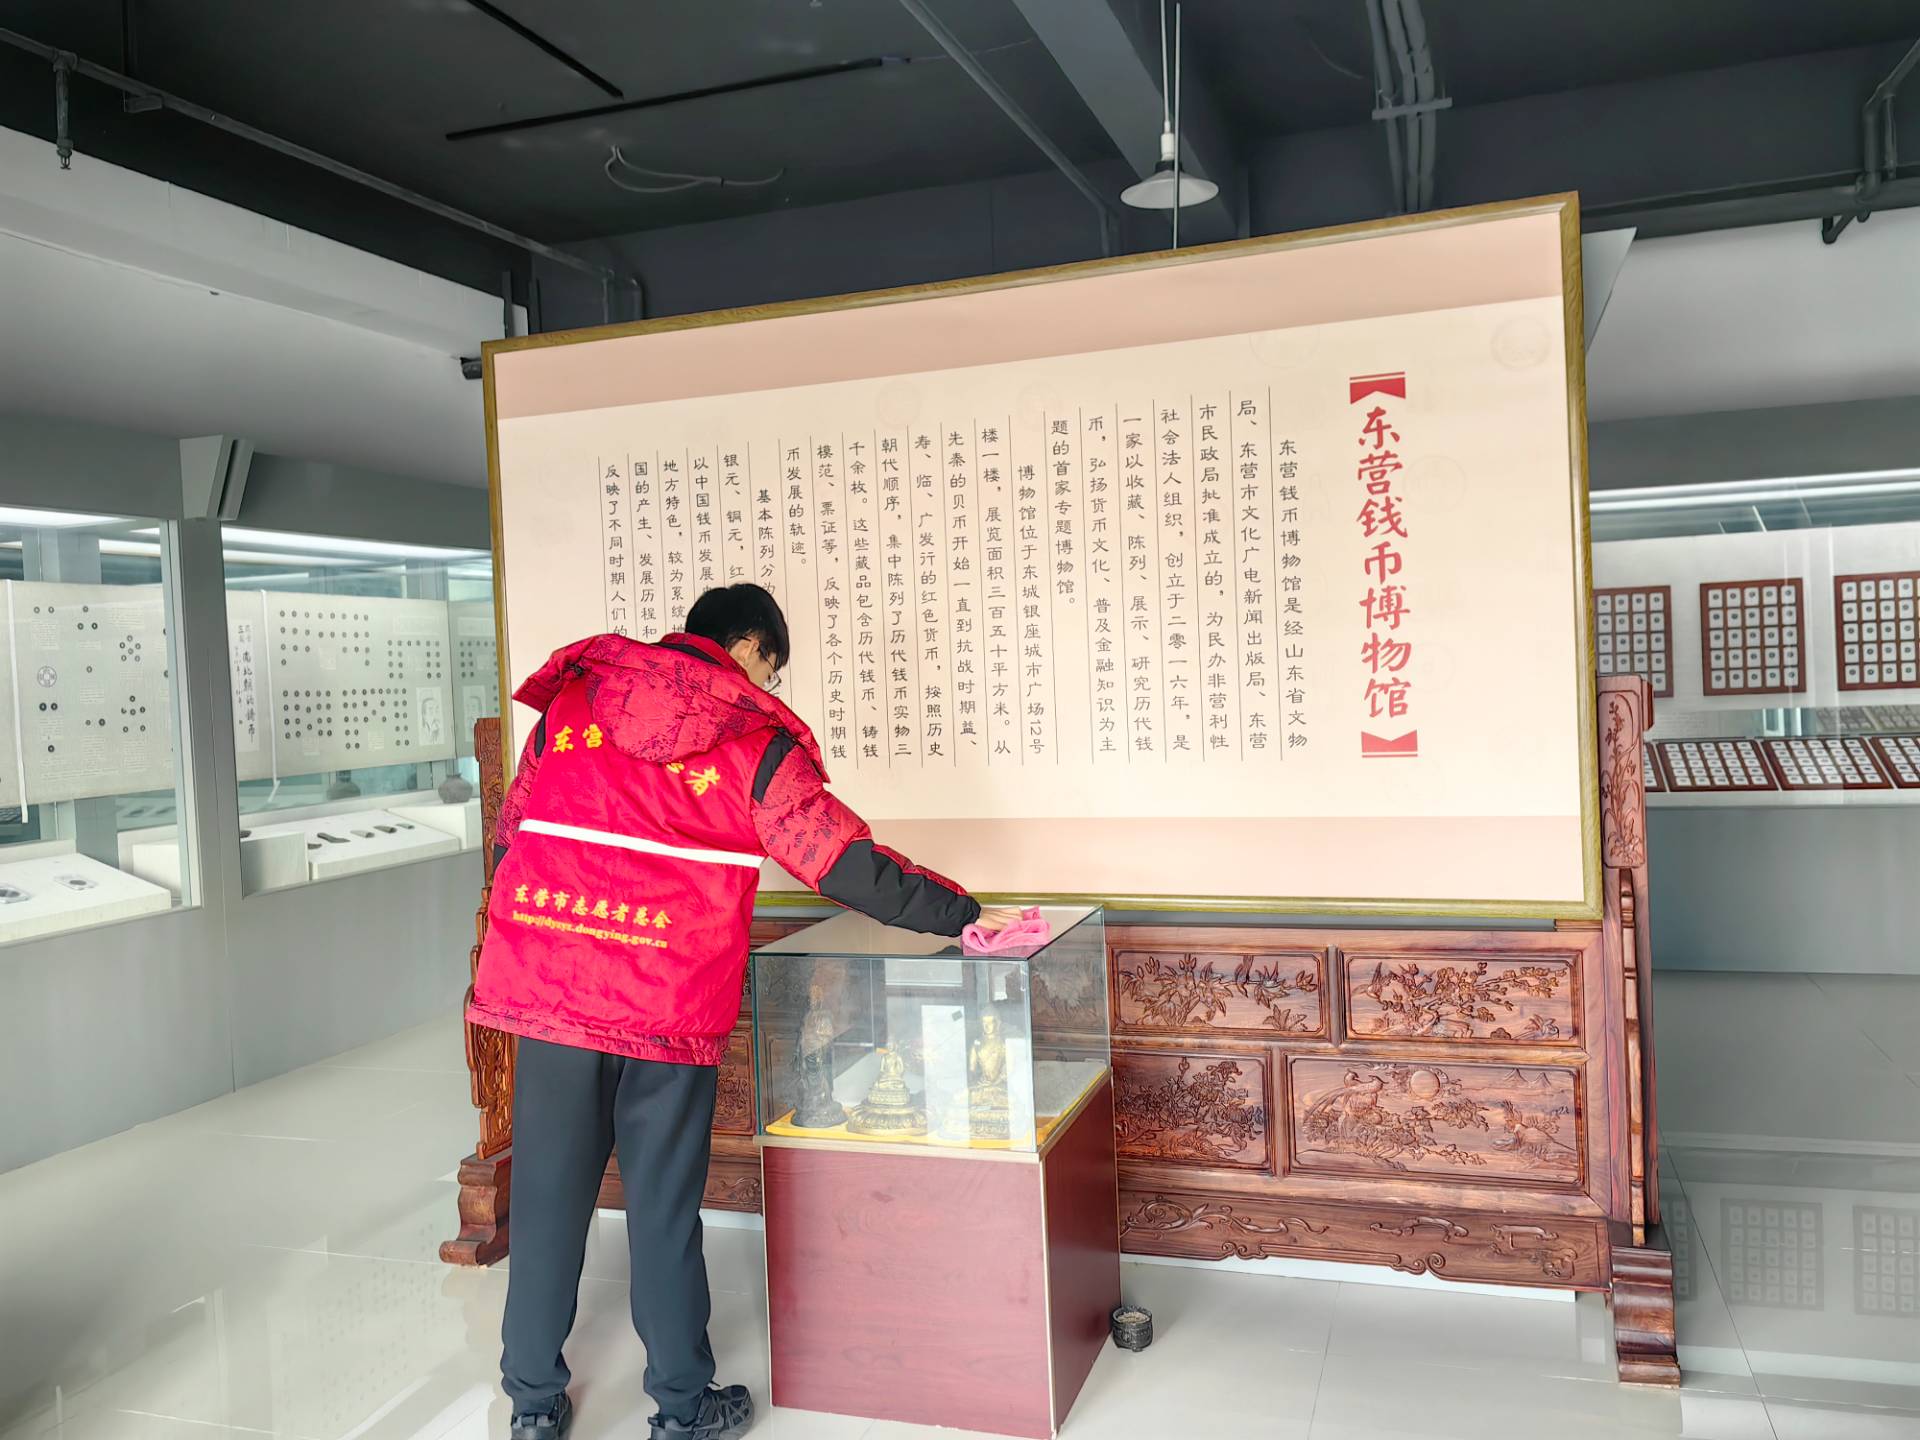 【东营钱币博物馆】
东营钱币博物馆是经山东省文物
局、东营市文化广电新闻出版局、东营
市民政局批准成立的，为民办非营利性
社会法人组织，创立于二零一六年，是
一家以收藏、陈列、展示、研究历代钱
币，弘扬货币文化、普及金融知识为主
题的首家专题博物馆。
博物馆位于东城银座城市广场12号
楼一楼，展览面积三百五十平方米。从
先秦的贝币开始一直到抗战时期益、
寿、临、广发行的红色货币，按照历史
朝代顺序，集中陈列了历代钱币实物三
千余枚。这些藏品包含历代钱币、铸钱
模范、票证等，反映了各个历史时期钱
币发展的轨迹。
基本陈列分为
银元、铜元，红
以中国钱币发展
地方特色，较为系统地
国的产生、发展历程和
反映了不同时期人们的
东营 者
东营市志愿者总会
http://dyzyz.dongying.gov.cn
南北朝的铸币